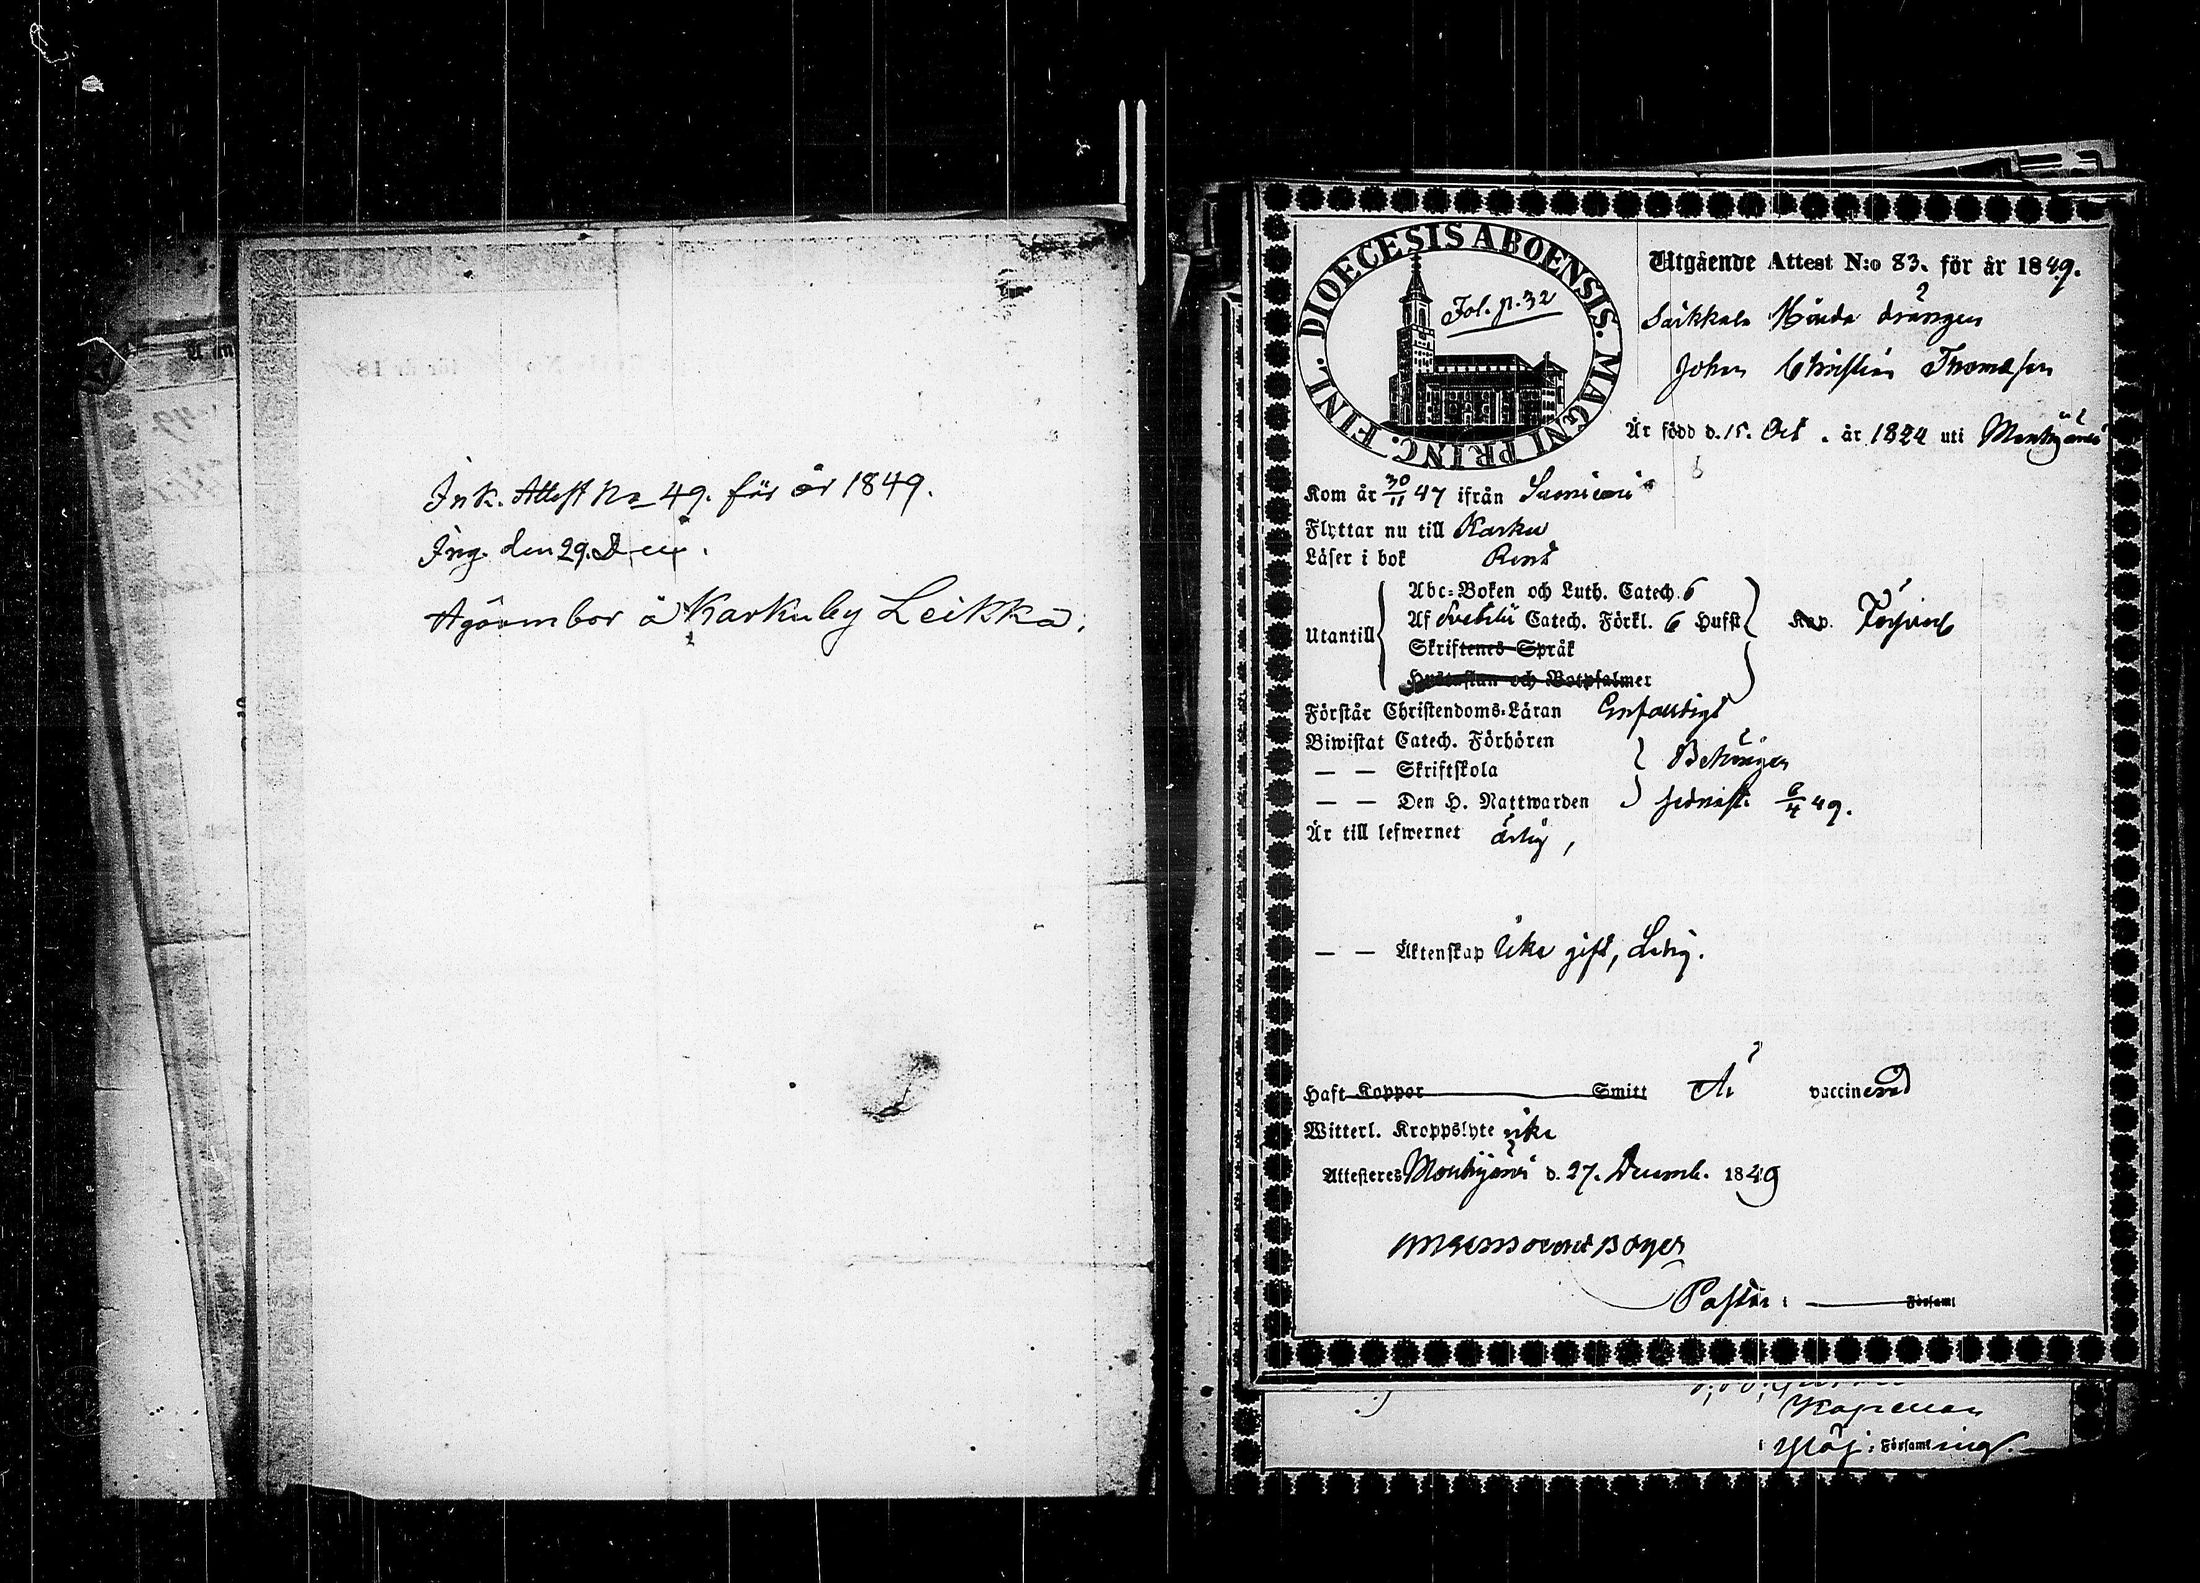 Ink. Attest No 49. för år 1849.
Ing. den 29. Dec.
å Karkuby Leikka.
DIOECESIS ABOENSIS. MAGNI PRINC. FINL.
Fol. p. 32
Utgående Attest N:o 83. för år 1849.
drängen
Johan Christian Thomasson
Är född d. 15. Oct. år 1824 uti Mouhijärvi
Kom år 30/11 47 ifrån Suoniemi
Flyttar nu till Karku
Läser i bok Rent
Utantill
Abc-Boken och Luth. Catech. 6
Af Svebilii Catech. Förkl. 6 Hufst. Kap.
Skriftenes Språk
Hustaflan och Botpsalmer
Förstår Christendoms-Läran Enfaldigt
Biwistat Catech. Förhören
— — Skriftskola
— — Den H. Nattwarden sednast 6/4 49.
Är till lefwernet ärlig,
— — Äktenskap icke gift, Ledig.
Haft Koppor Smitt Är vaccinerad
Witterl. Kroppslyte icke
Attesteres Mouhijärvi d. 27. Decemb. 1849
Pastor i Församl
Kapellan
i Ylöj. Församling.